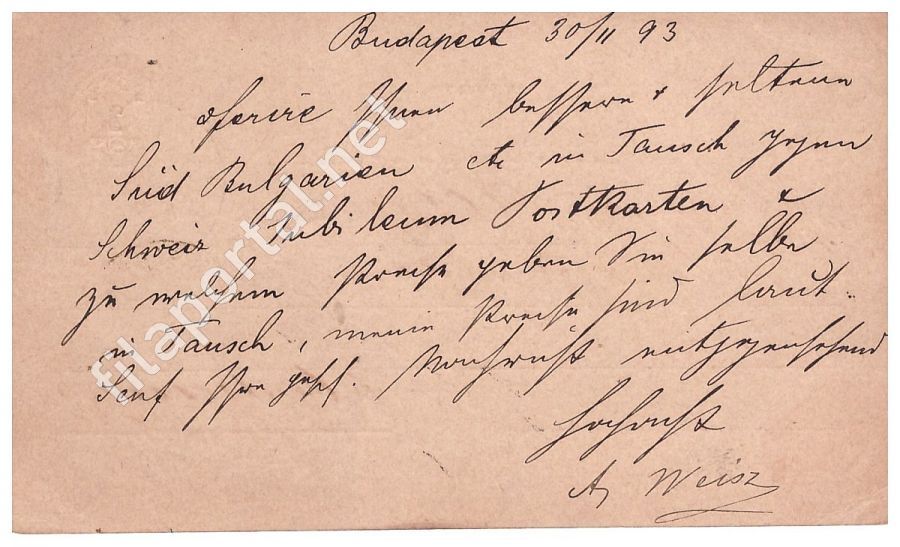 Budapest 30/11 93
oferire Ihnen bessere & seltene
Süd Bulgarien etc in Tausch gegen
Schweiz Jubileum Postkarten &
zu welchem Preise geben Sie selbe
in Tausch, meine Preise sind laut
Senf Ihre gefl. Nachricht entgegensehend
Hochacht
A. Weisz
filaportal.net